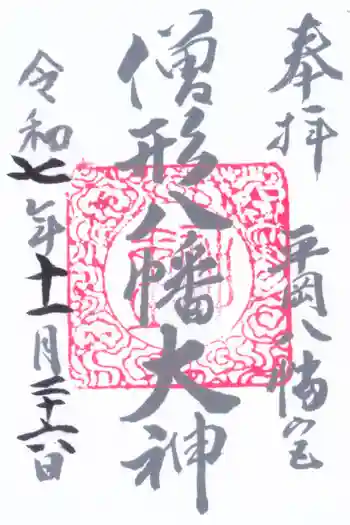 奉拝 平岡八幡宮
僧形八幡大神
令和七年十一月二十六日